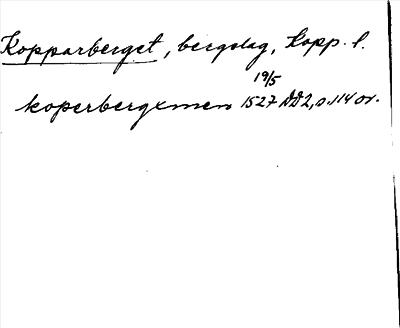 Kopparberget, bergslag, Kopp. l.
19/5
koperbergxmen 1527 DD2, s. 114 or.